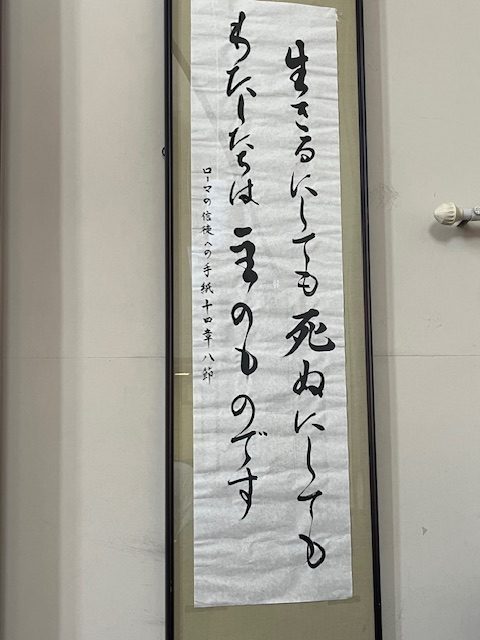 生きるにしても死ぬにしても
わたしたちは主のものです
ローマの信徒への手紙十四章八節